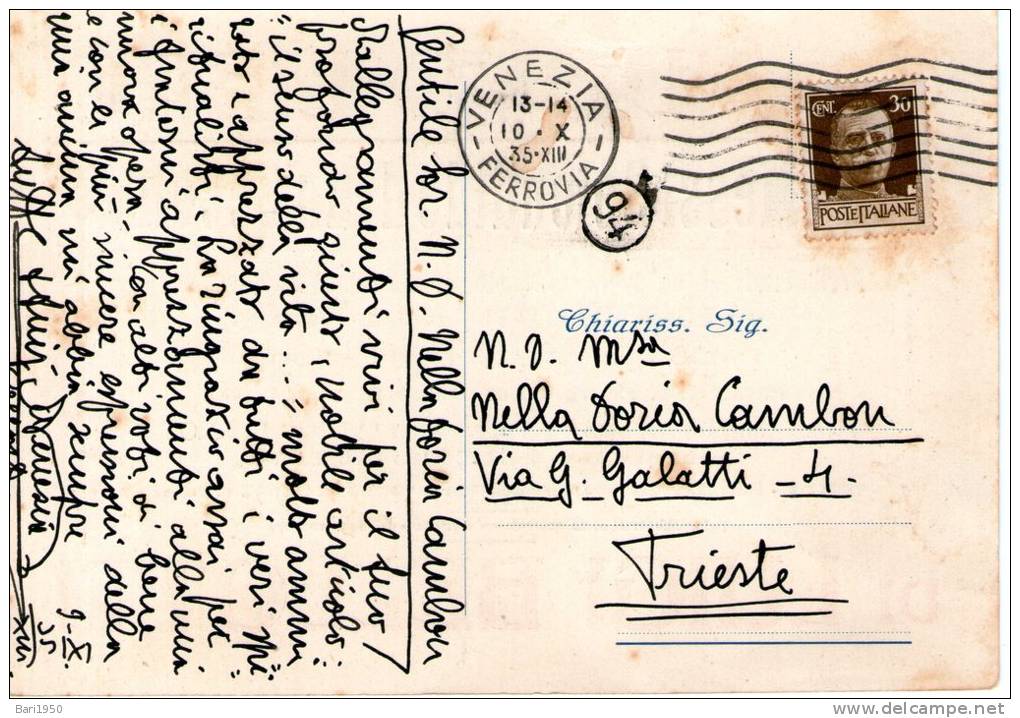 Gentile Sig. N. D. Nella Doria Cambon
Rallegramenti vivi per il suo
profondo, giusto, nobile articolo:
"il senso della vita..." molto ammi
rato e apprezzato da tutti i veri spi
ritualisti. La ringrazio assai per
i apprezzamenti alla mia
nuova opera. Con alti voti di bene
e con le più sincere espressioni della
mia anima mi abbia sempre
9-X.
35
XIII
VENEZIA
13-14
10·X
35·XIII
FERROVIA
94
CENT. 30
POSTE ITALIANE
Chiariss. Sig.
N. D. Msa
Nella Doria Cambon
Via G. Galatti - 4.
Trieste
Bari1950
delcampe.net